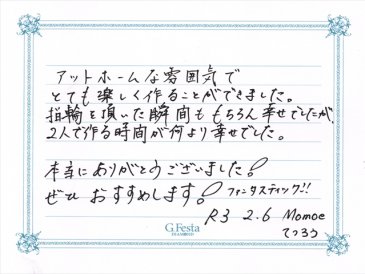 アットホームな雰囲気で
とても楽しく作ることができました。
指輪を頂いた瞬間ももちろん幸せでしたが、
2人で作る時間が何より幸せでした。
本当にありがとうございました!
ぜひおすすめします! ファンタスティック!!
R3 2.6 Momoe
てつろう
G.Festa
DIAMOND